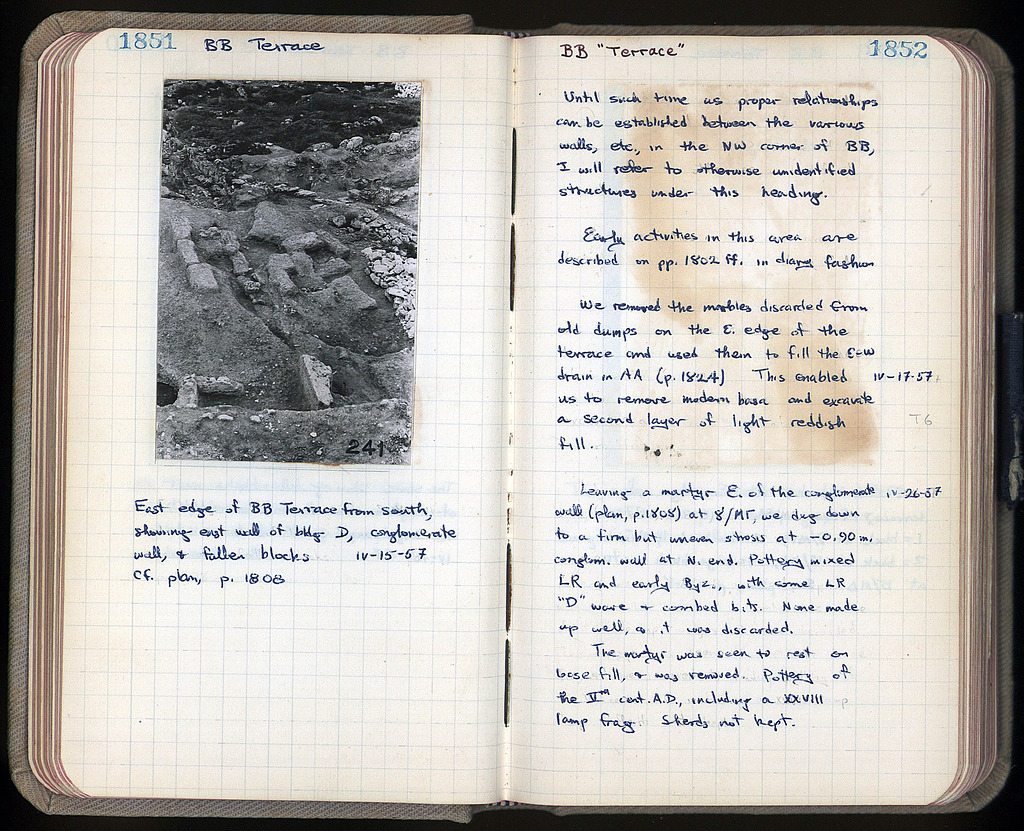 1851 BB Terrace
241
East edge of BB Terrace from south,
showing east wall of bldg D, conglomerate
wall, & fallen blocks IV-15-57
Cf. plan, p. 1808
BB "Terrace" 1852
Until such time as proper relationships
can be established between the various
walls, etc., in the NW corner of BB,
I will refer to otherwise unidentified
structures under this heading.
Early activities in this area are
described on pp. 1802 ff. in diary fashion
We removed the marbles discarded from
old dumps on the E. edge of the
terrace and used them to fill the E-W
drain in AA (p. 1824) This enabled IV-17-57
us to remove modern basa and excavate
a second layer of light reddish T6
fill.
Leaving a martyr E. of the conglomerate IV-26-57
wall (plan, p. 1808) at 8/MΓ, we dug down
to a firm but uneven strosis at -0.90 m.
conglom. wall at N. end. Pottery mixed
LR and early Byz., with some LR
"D" ware & combed bits. None made
up well, so it was discarded.
The martyr was seen to rest on
loose fill, & was removed. Pottery of
the cent. A.D., including a XXVIII
lamp frag. Sherds not kept.